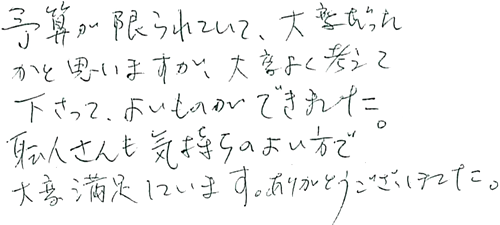 予算が限られていて、大変だった
かと思いますが、大変よく考えて
下さって、よいものができました。
職人さんも気持ちのよい方で
大変満足しています。ありがとうございました。